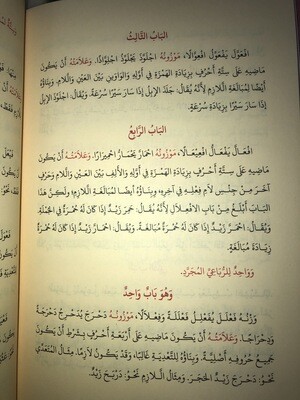 البَابُ الثَّالِثُ
افْعَوَّلَ يَفْعَوِّلُ افْعِوَّالًا، مَوْزُونُهُ اجْلَوَّذَ يَجْلَوِّذُ اجْلِوَّاذًا. وَعَلَامَتُهُ أَنْ يَكُونَ
مَاضِيهِ عَلَى سِتَّةِ أَحْرُفٍ بِزِيَادَةِ الهَمْزَةِ فِي أَوَّلِهِ وَالوَاوَيْنِ بَيْنَ العَيْنِ وَاللَّامِ، وَبِنَاؤُهُ
أَيْضًا لِمُبَالَغَةِ اللَّازِمِ لِأَنَّهُ يُقَالُ: جَلَذَ الإِبِلُ إِذَا سَارَ سَيْرًا بِسُرْعَةٍ. وَيُقَالُ: اجْلَوَّذَ الإِبِلُ
إِذَا سَارَ سَيْرًا بِزِيَادَةِ سُرْعَةٍ.
البَابُ الرَّابِعُ
افْعَالَّ يَفْعَالُّ افْعِيعَالًا، مَوْزُونُهُ احْمَارَّ يَحْمَارُّ احْمِيرَارًا. وَعَلَامَتُهُ أَنْ يَكُونَ
مَاضِيهِ عَلَى سِتَّةِ أَحْرُفٍ بِزِيَادَةِ الهَمْزَةِ فِي أَوَّلِهِ وَالأَلِفِ بَيْنَ العَيْنِ وَاللَّامِ وَحَرْفٍ
آخَرَ مِنْ جِنْسِ لَامِ فِعْلِهِ فِي آخِرِهِ، وَبِنَاؤُهُ أَيْضًا لِمُبَالَغَةِ اللَّازِمِ، وَلَكِنَّ هَذَا
البَابَ أَبْلَغُ مِنْ بَابِ الافْعِلَالِ لِأَنَّهُ يُقَالُ: حَمِرَ زَيْدٌ إِذَا كَانَ لَهُ حُمْرَةٌ فِي الجُمْلَةِ.
وَيُقَالُ: احْمَرَّ زَيْدٌ إِذَا كَانَ لَهُ حُمْرَةٌ مُبَالَغَةً. وَيُقَالُ: احْمَارَّ زَيْدٌ إِذَا كَانَ لَهُ حُمْرَةٌ
زِيَادَةَ مُبَالَغَةٍ.
وَوَاحِدٌ لِلرُّبَاعِيِّ المُجَرَّدِ.
وَهُوَ بَابٌ وَاحِدٌ
وَزْنُهُ فَعْلَلَ يُفَعْلِلُ فَعْلَلَةً وَفِعْلَالًا، مَوْزُونُهُ دَحْرَجَ يُدَحْرِجُ دَحْرَجَةً
وَدِحْرَاجًا. وَعَلَامَتُهُ أَنْ يَكُونَ مَاضِيهِ عَلَى أَرْبَعَةِ أَحْرُفٍ بِشَرْطِ أَنْ يَكُونَ
جَمِيعُ حُرُوفِهِ أَصْلِيَّةً، وَبِنَاؤُهُ لِلتَّعْدِيَةِ غَالِبًا، وَقَدْ يَكُونُ لَازِمًا. مِثَالُ المُتَعَدِّي
نَحْوُ: دَحْرَجَ زَيْدٌ الحَجَرَ. وَمِثَالُ اللَّازِمِ نَحْوُ: دَرْبَحَ زَيْدٌ.